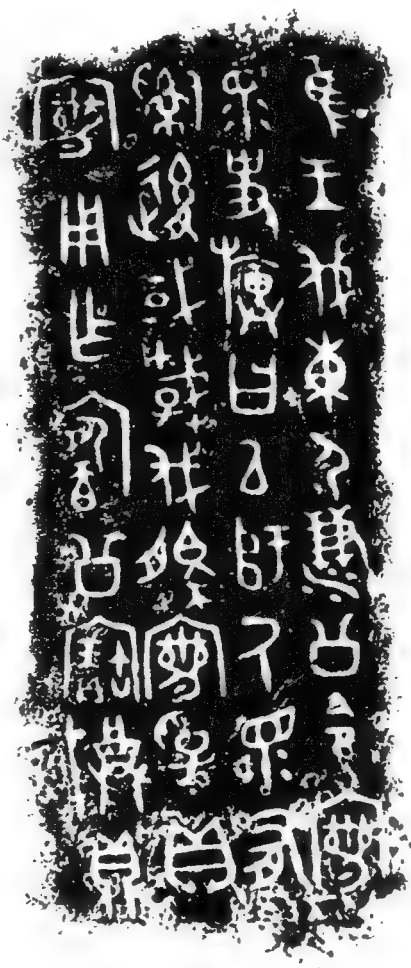 隹王伐東尸溓公令𩁹
眔史旟曰㠯師氏眔有
𤔲後或𢦏伐𦝠𩁹孚貝
𩁹用乍𩛥公寶尊鼎